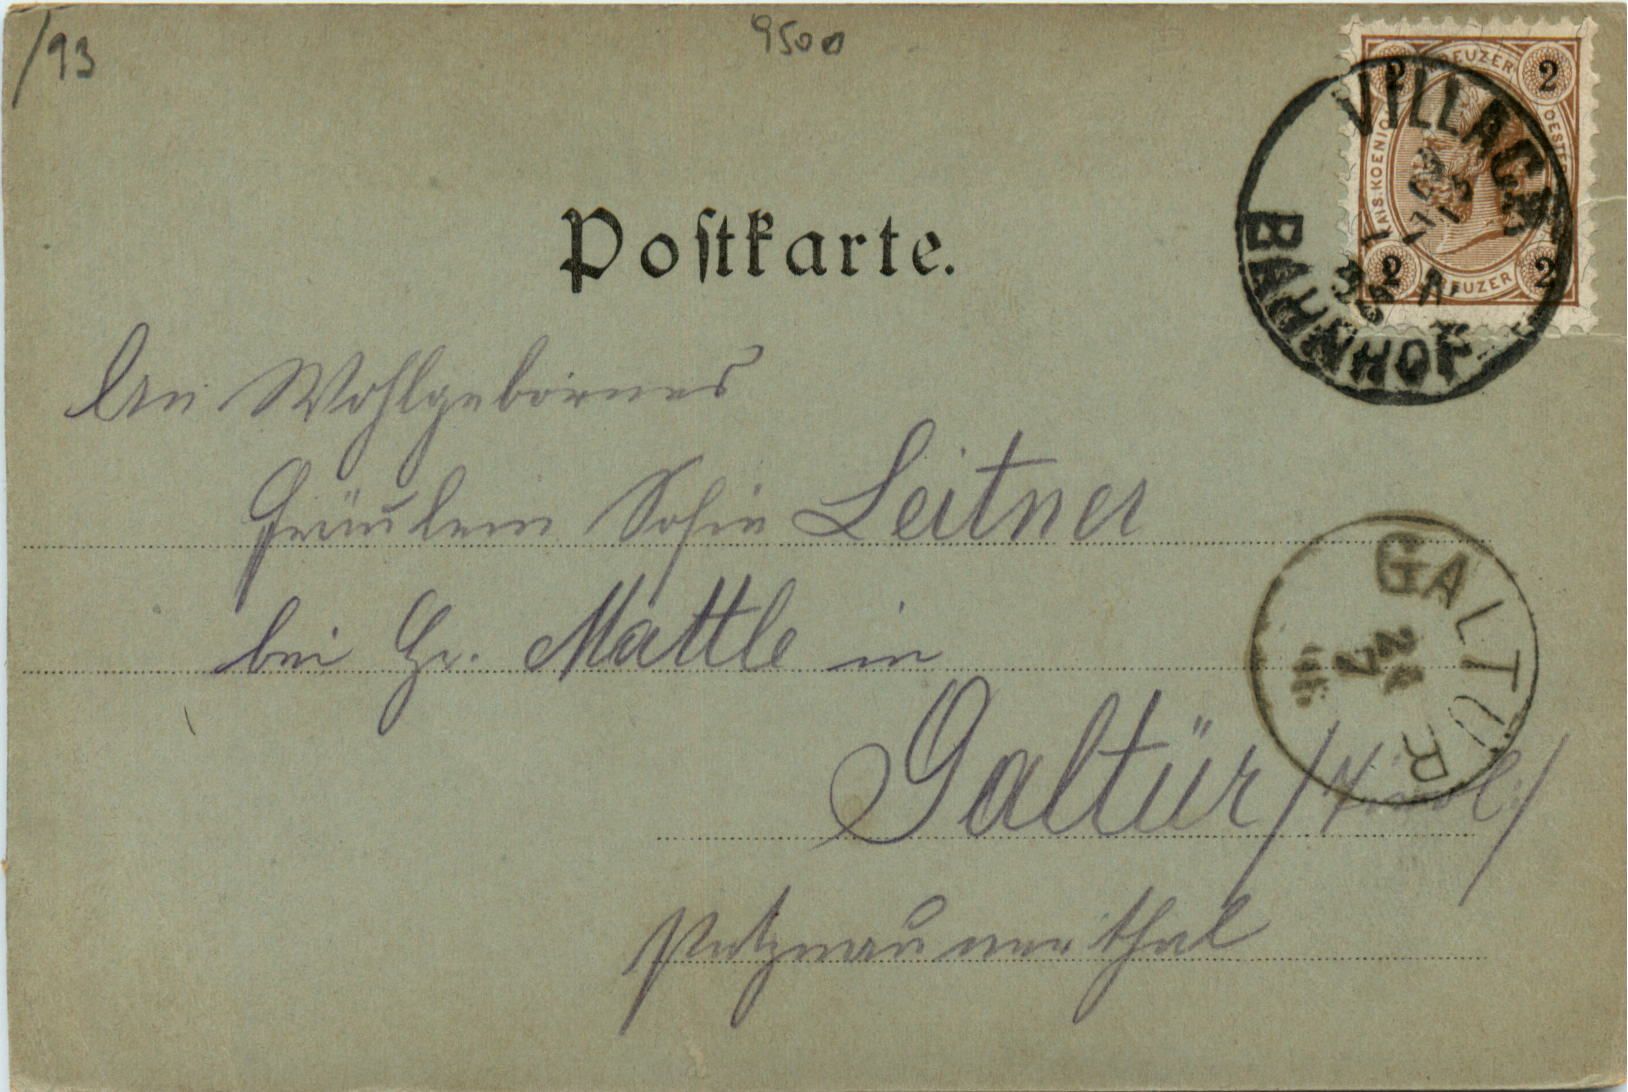 /93
9500
2 KREUZER 2
KAIS. KOENIG. OESTERR.
2 KREUZER 2
VILLACH
BAHNHOF
Postkarte.
An Wohlgebornes
Fräulein Sofie Leitner
bei Hr. Mattle in
Galtür /Tirol/
Patznaunerthal
GALTÜR
24
7